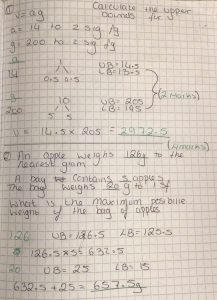 ① Calculate the upper
V = ag bounds for
a = 14 to 2 sig fig
g = 200 to 2 sig fig
a
14 UB = 14.5
LB = 13.5
0.5 0.5
(2 marks)
g 10 UB = 205
200 LB = 195
5 5
V = 14.5 x 205 = 2972.5
(4 marks)
② An apple weighs 126g to the
nearest gram
A bag contains 5 apples
The bag weighs 20g to 1 sf
What is the maximum possible
weight of the bag of apples
126 UB = 126.5 LB = 125.5
126.5 x 5 = 632.5
20 UB = 25 LB = 15
632.5 + 25 = 657.5g